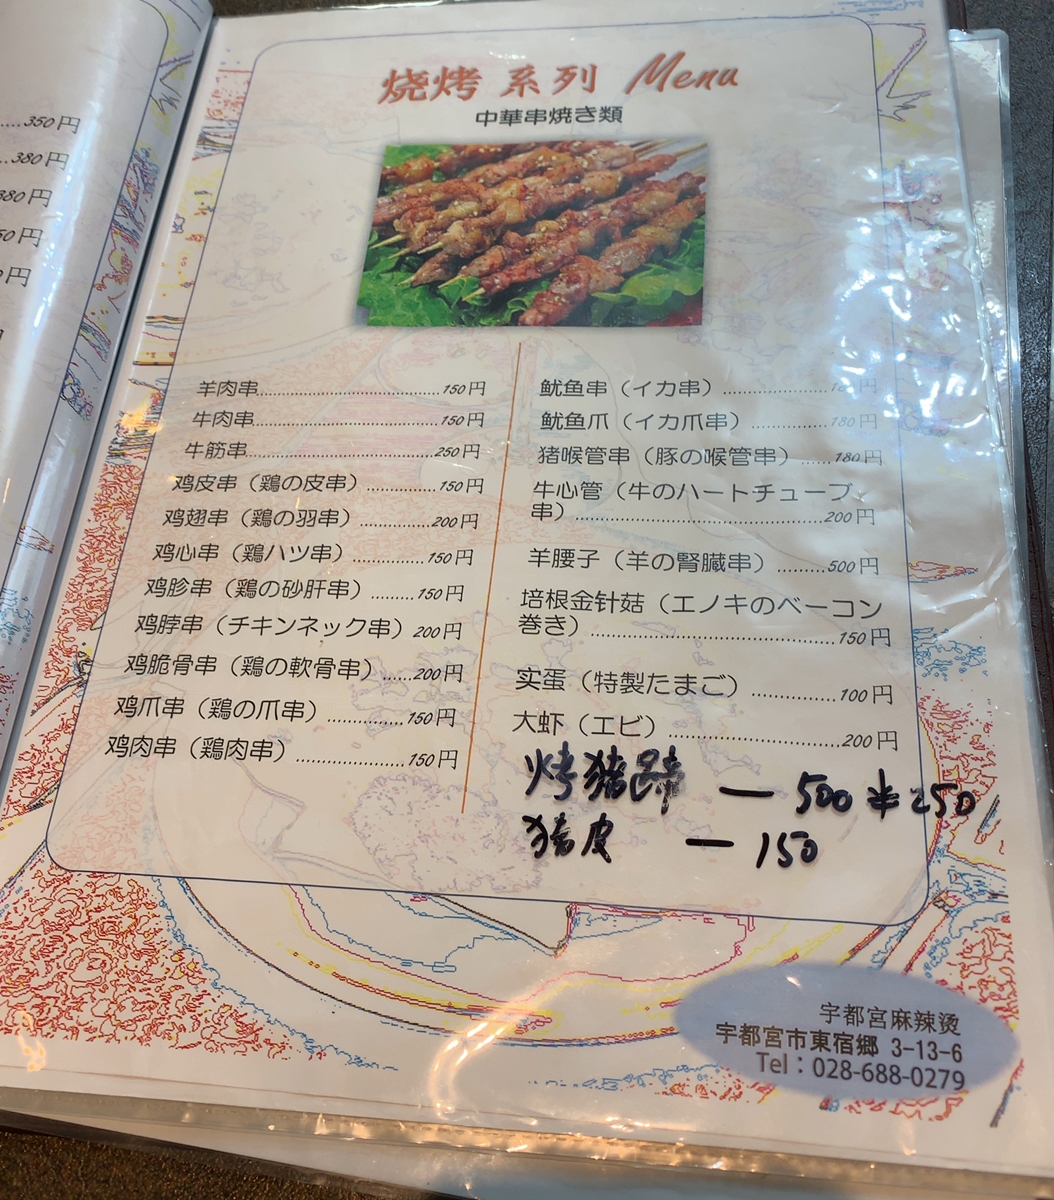 ...350円
..380円
380円
50円
円
烧烤 系列 Menu
中華串焼き類
羊肉串..............................150円
牛肉串..............................150円
牛筋串..............................250円
鸡皮串（鶏の皮串）..............150円
鸡翅串（鶏の羽串）..............200円
鸡心串（鶏ハツ串）..............150円
鸡胗串（鶏の砂肝串）.........150円
鸡脖串（チキンネック串）200円
鸡脆骨串（鶏の軟骨串）......200円
鸡爪串（鶏の爪串）..............150円
鸡肉串（鶏肉串）....................150円
鱿鱼串（イカ串）.....................円
鱿鱼爪（イカ爪串）..............180円
猪喉管串（豚の喉管串）......180円
牛心管（牛のハートチューブ
串）..............................200円
羊腰子（羊の腎臓串）.........500円
培根金针菇（エノキのベーコン
巻き）..............................150円
实蛋（特製たまご）..............100円
大虾（エビ）..............................200円
烤猪蹄 — 500 半250
猪皮 — 150
宇都宮麻辣烫
宇都宮市東宿郷 3-13-6
Tel：028-688-0279